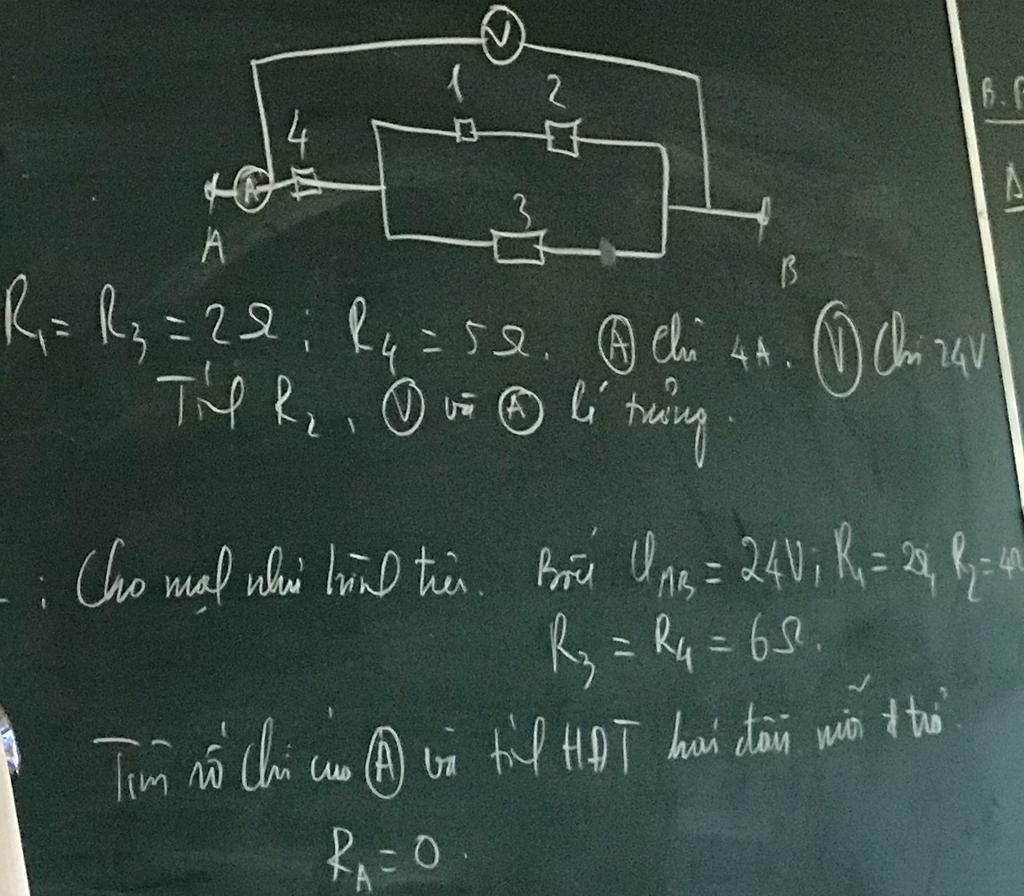 V
1 2
4
A
3
A
B
R₁ = R₃ = 2Ω ; R₄ = 5Ω. Ⓐ chỉ 4A. Ⓥ Chỉ 24V
Tính R₂, Ⓥ và Ⓐ lí tưởng.
: Cho mạch như hình trên. Biết U_AB = 24V; R₁ = 2Ω, R₂ = 4Ω
R₃ = R₄ = 6Ω.
Tìm số chỉ của Ⓐ và tính HĐT hai đầu mỗi đ trở.
R_A = 0.
B.